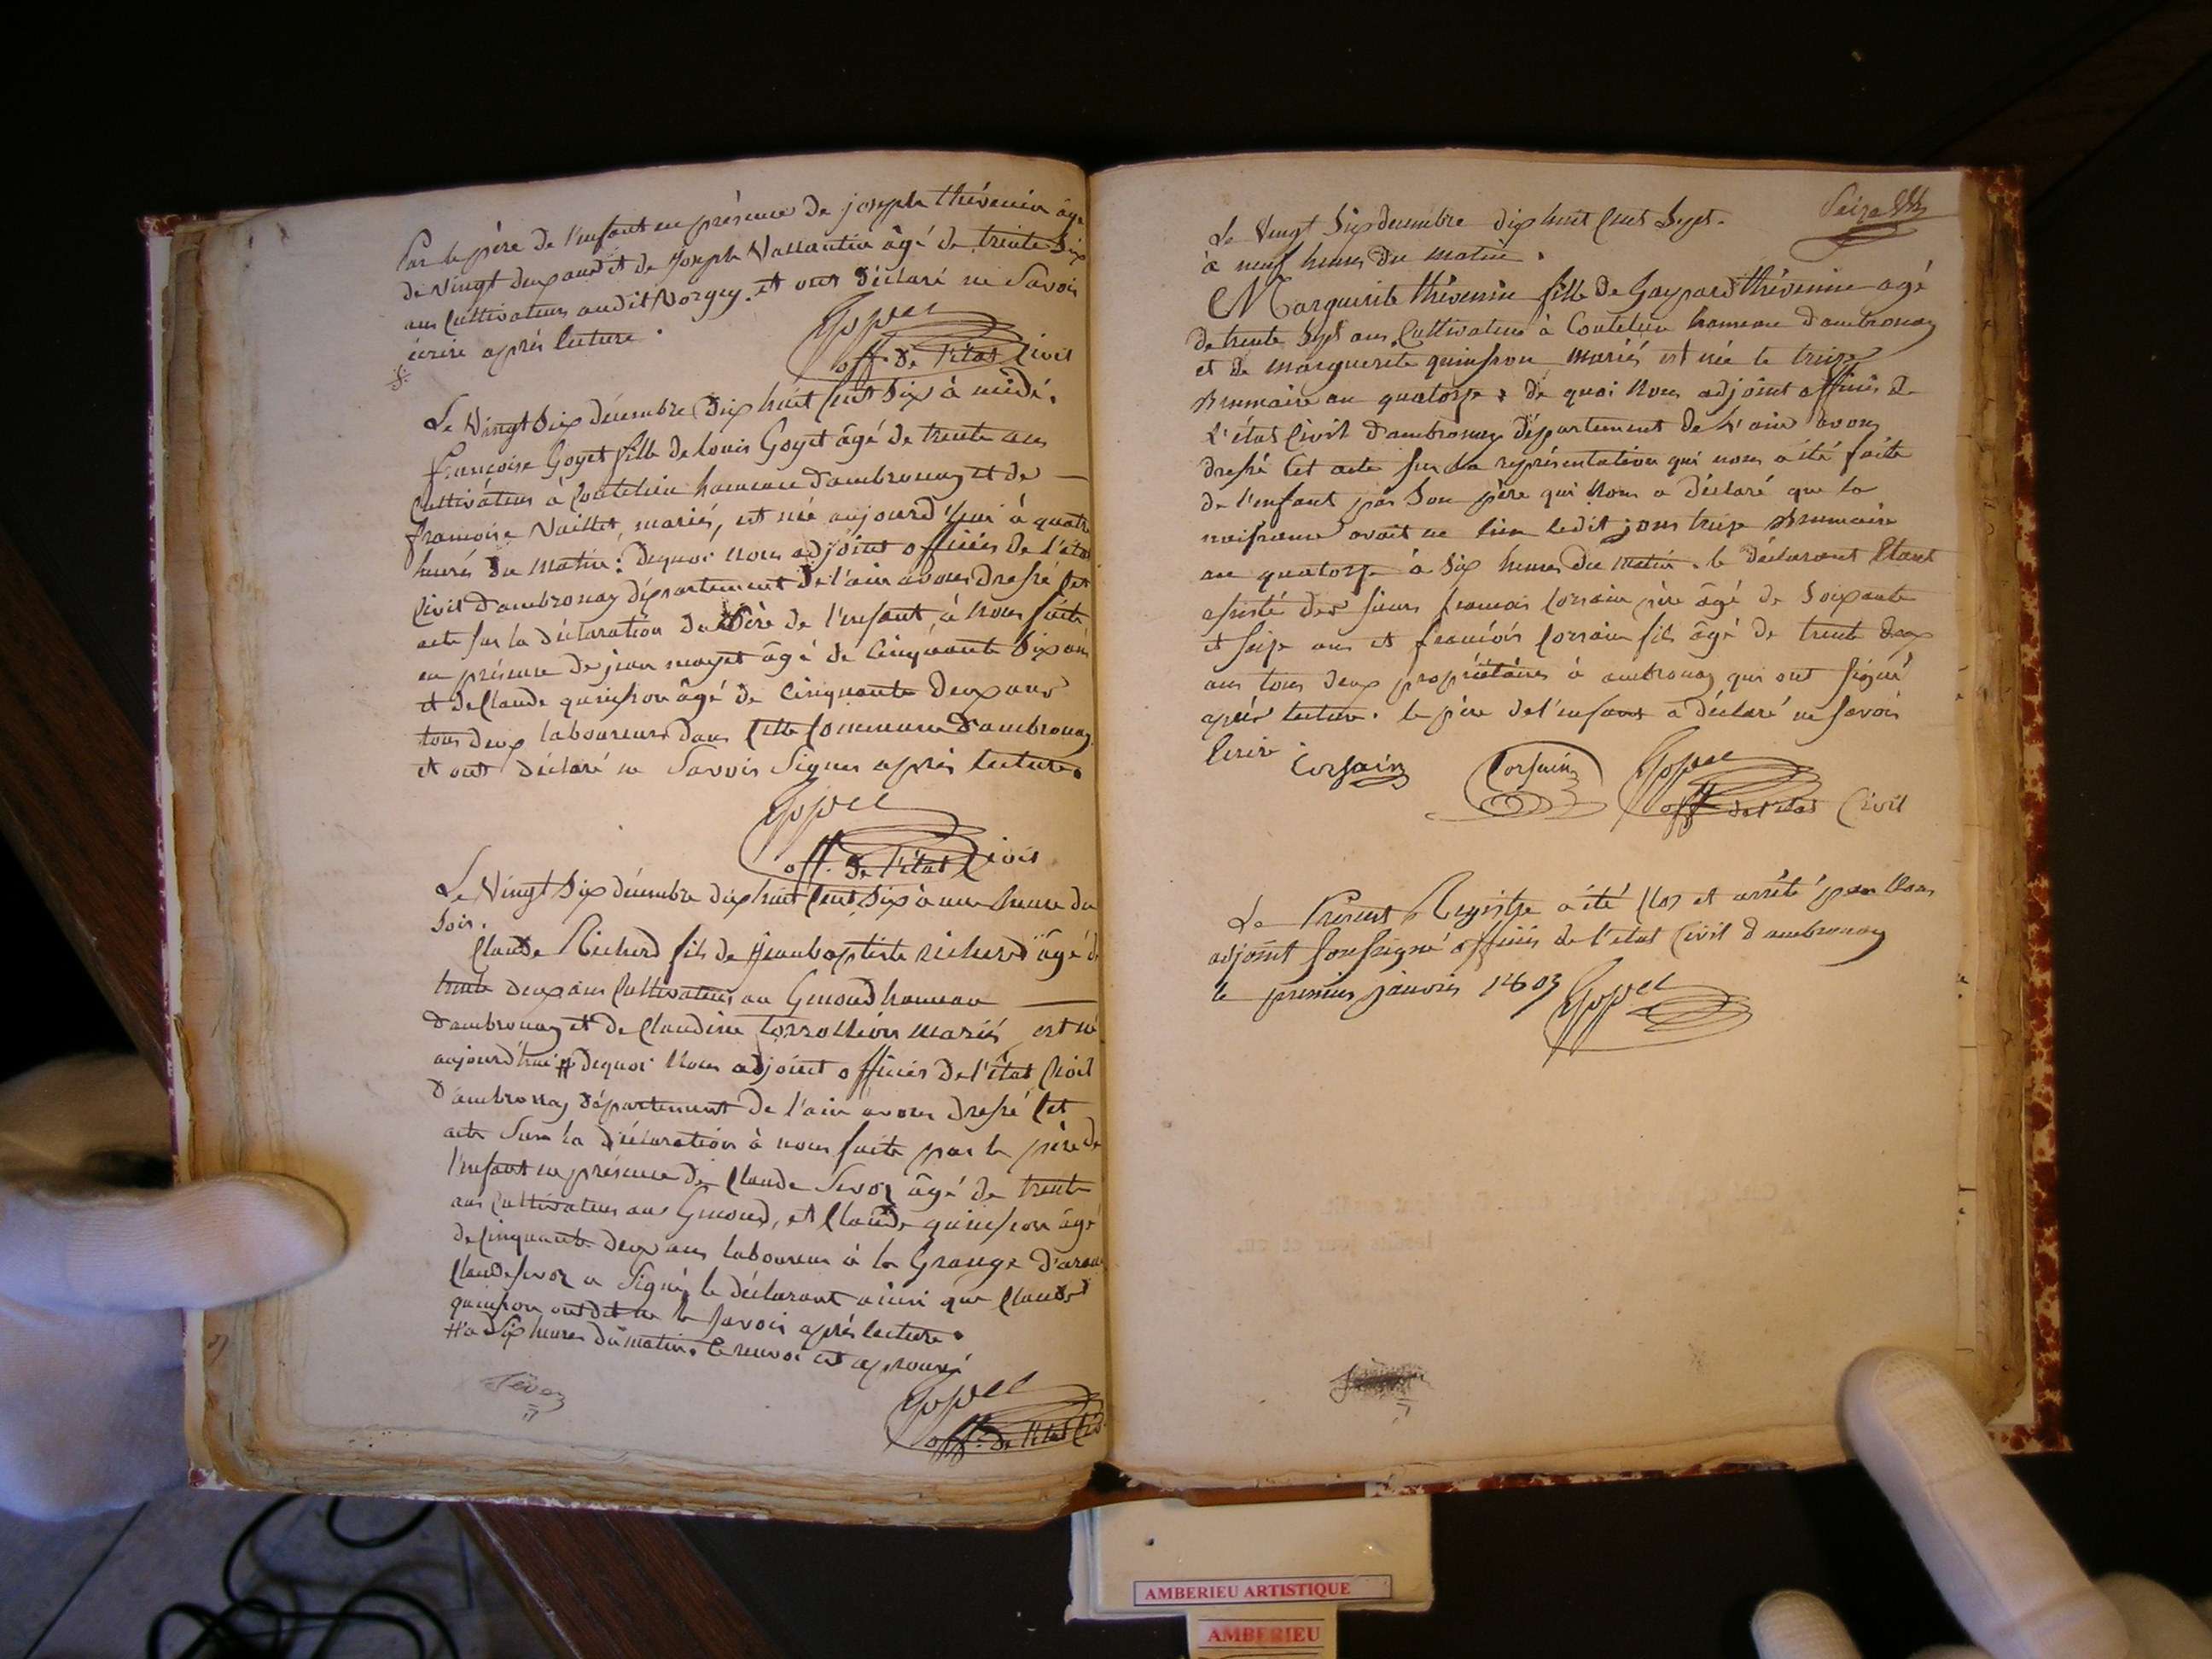 Par le père de l'enfant en présence de joseph thévenin âgé
de vingt deux ans et de Joseph Vallantin âgé de trente six
ans Cultivateurs audit Vorgey. et ont déclaré ne Savoir
écrire après lecture.
off. de l'état Civil
Le Vingt Six décembre dix huit Cent Six à midi.
françoise Goyet fille de louis Goyet âgé de trente ans
Cultivateur à Coutelieu hameau d'ambronay et de
françoise Vaillet, mariés, est née aujourd'hui à quatre
heures du matin: dequoi nous adjoint officier de l'état
Civil d'ambronay département de l'ain avons dressé Cet
acte sur la déclaration du père de l'enfant, à nous faite
en présence de jean moyet âgé de Cinquante Six ans
et de Claude quinson âgé de Cinquante deux ans
tous deux laboureurs dans Cette Commune d'ambronay
et ont déclaré ne Savoir Signer après lecture.
off. de l'état Civil
Le Vingt Six décembre dix huit Cent Six à une heure du
Soir.
Claude Richerd fils de Jeanbaptiste richerd âgé de
trente deux ans Cultivateur au Genoud hameau
d'ambronay et de Claudine mariés est né
aujourd'hui # dequoi Nous adjoint officier de l'état Civil
d'ambronay département de l'ain avons dressé Cet
acte Sur la déclaration à nous faite par le père de
l'enfant en présence de Claude Sevoz âgé de trente
ans Cultivateur au Genoud, et Claude quinson âgé
de Cinquante deux ans laboureur à la Grange
Claude Sevoz a Signé, le déclarant ainsi que Claude
quinson ont dit ne le Savoir après lecture.
# à Six heures du matin. Ce renvoi est aprouvé
Sévoz
off. de l'état Civil
Seize
Le Vingt Six decembre dix huit Cent Sept.
à neuf heures du matin.
Marguerite thévenin fille de Gaspard thévenin agé
de trente Sept ans, Cultivateur à Coutelieu hameau d'ambronay
et de marguerite quinson mariés est née le treize
Brumaire an quatorze: de quoi Nous adjoint officier de
L'état Civil d'ambronay département de L'ain avons
dressé Cet acte sur la représentation qui nous a été faite
de l'enfant par Son père qui Nous a déclaré que la
naissance avait eu lieu ledit jour treize Brumaire
an quatorze à Six heures du matin. le déclarant Etant
assisté des sieurs françois Corsain père âgé de Soixante
et seize ans et françois Corsain fils âgé de trente deux
ans tous deux propriétaires à ambronay qui ont signé
après lecture. le père de l'enfant a déclaré ne savoir
Ecrire
Corsain Corsain
off de l'état Civil
Le Présent Registre a été Clos et arrêté par Nous
adjoint soussigné officier de l'état Civil d'ambronay
le premier janvier
AMBERIEU ARTISTIQUE
AMBERIEU